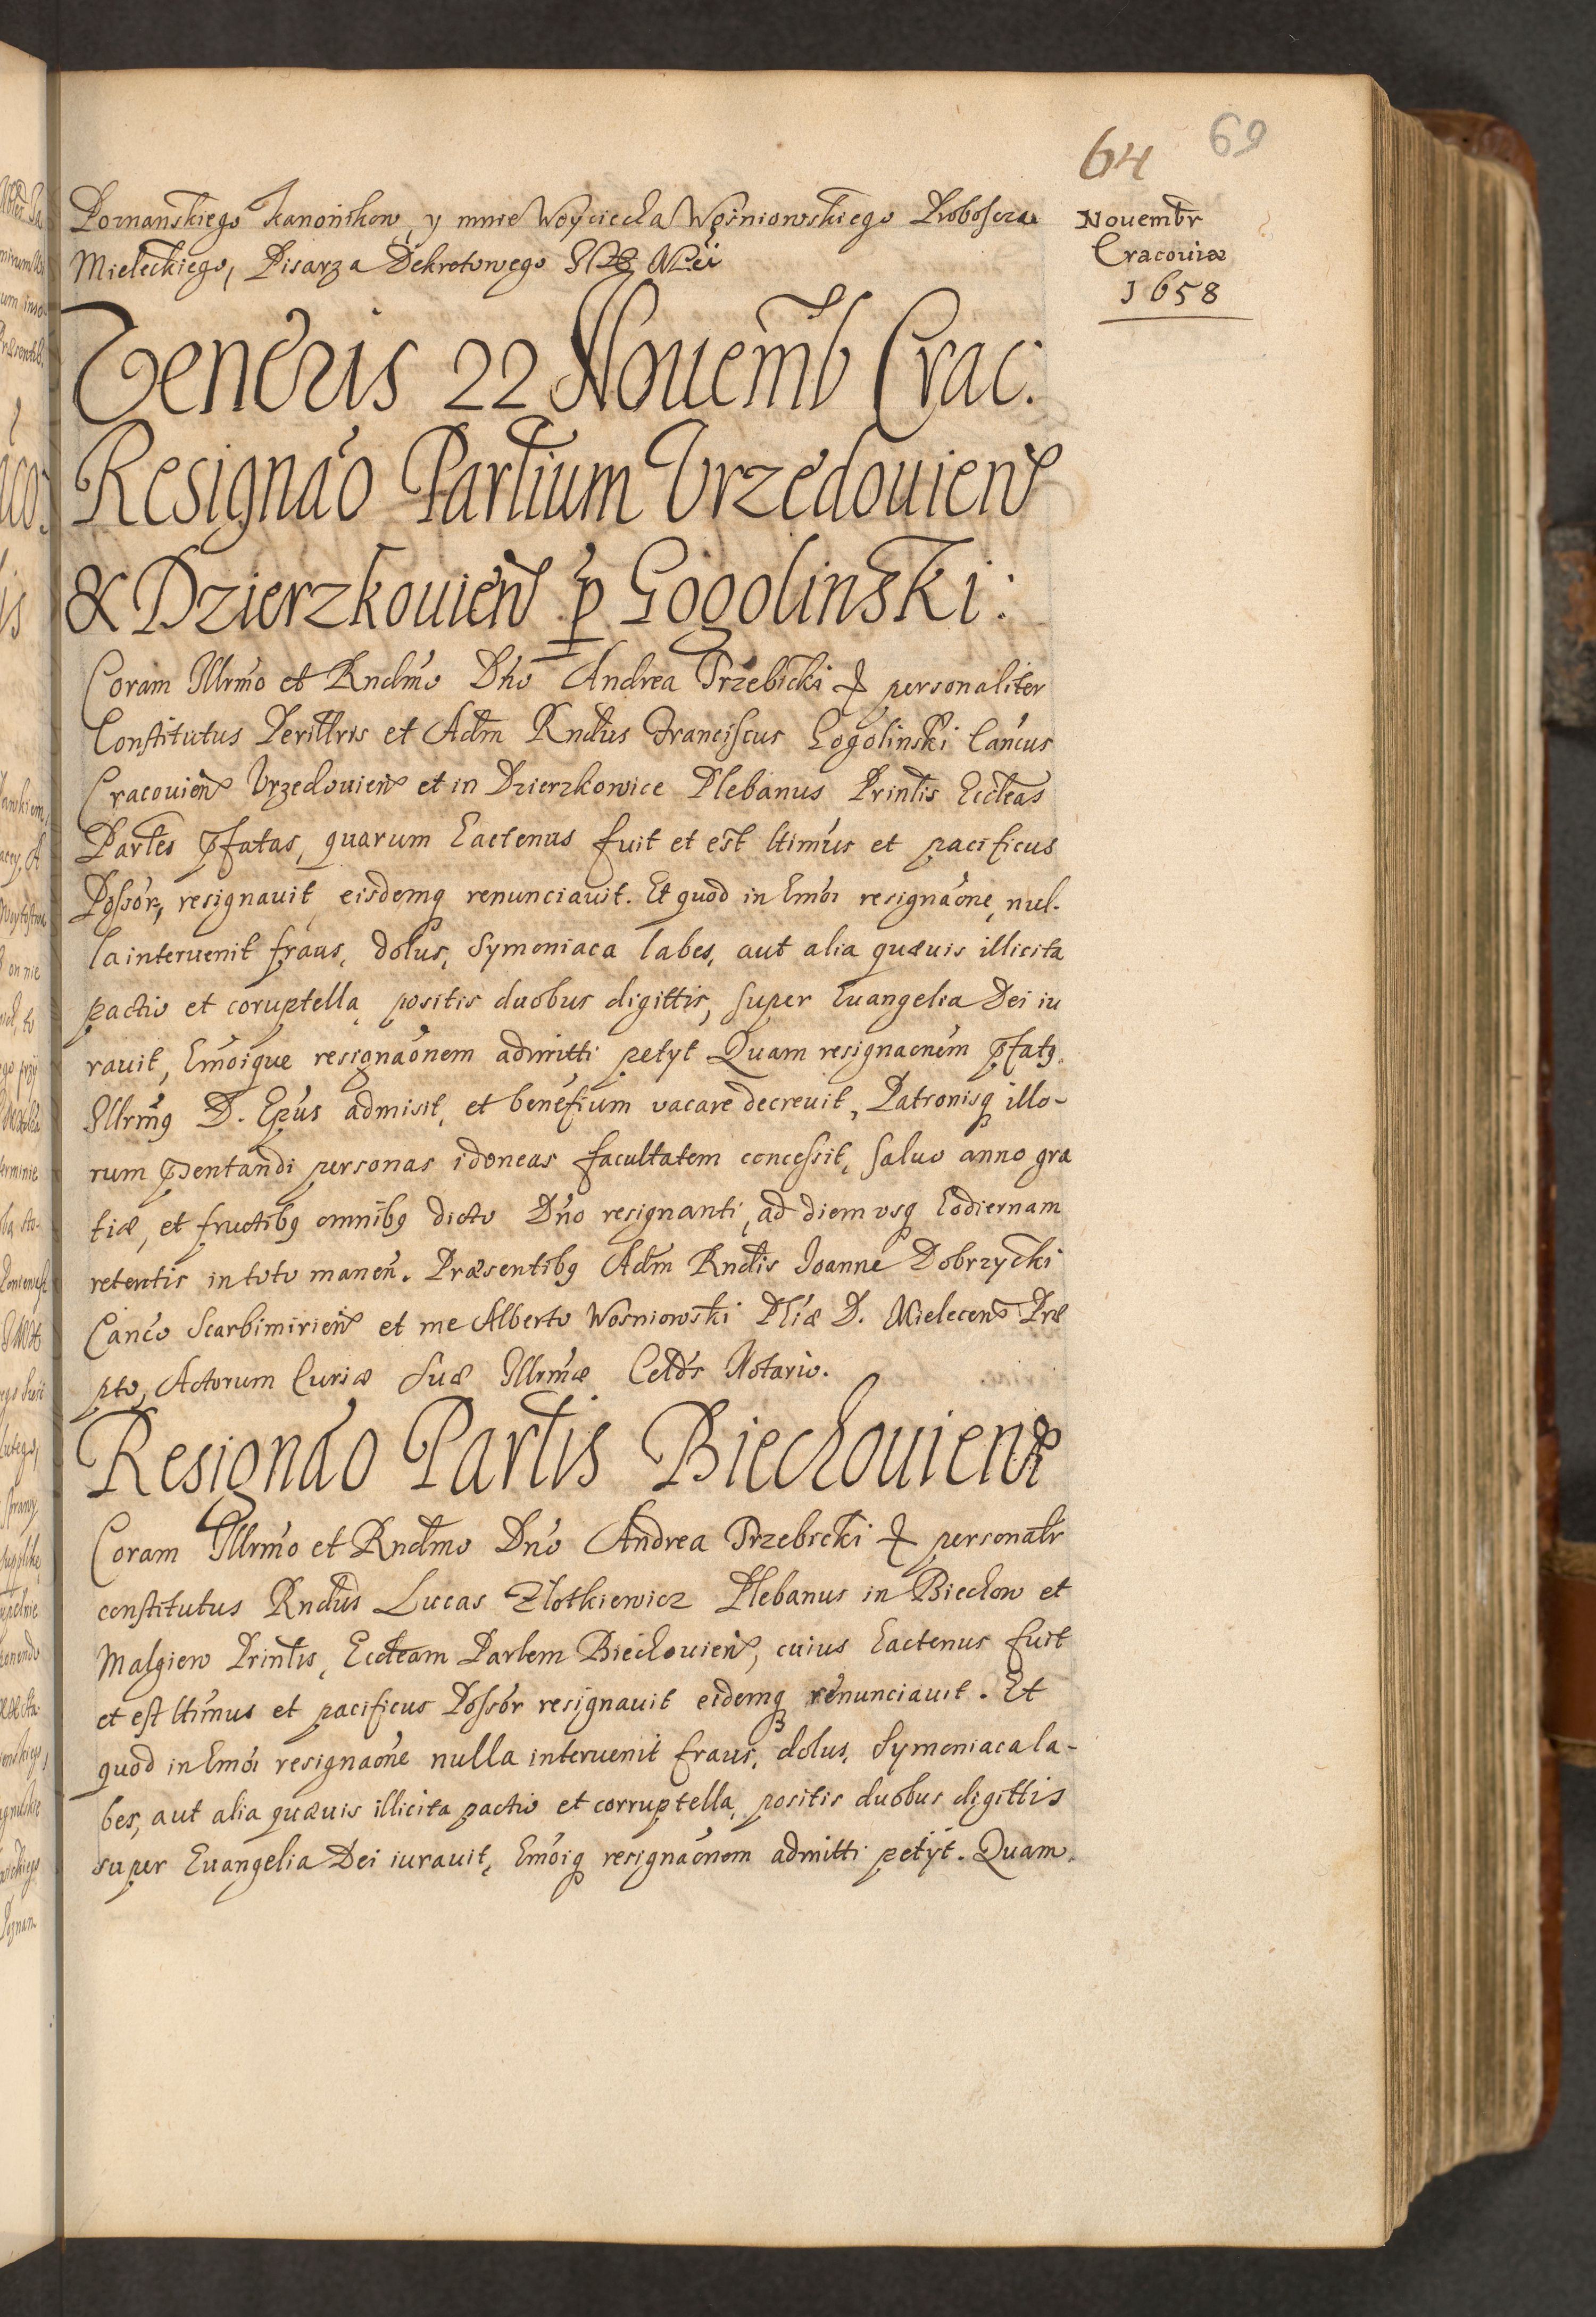 64 69
Novembr
Cracoviæ
1658
Poznanskiego Kanonikow, y mnie Woyciecha Wosniowskiego Proboscza
Mieleckiego, Pisarza Dekretowego
Veneris 22 Nouemb Crac:
Resignao Partium Vrzedouien
& Dzierzkouien p Gogolinski:
Coram Illrmo et Rndmo Dno Andrea Trzebicki & personaliter
Constitutus Perillris et Adm Rndus Franciscus Gogolinski Cancus
Cracouien Vrzedouien et in Dzierzkowice Plebanus Printis Eccleas
Partes pfatas, quarum hactenus fuit et est ltimus et pacificus
Possor, resignauit eisdemq renunciauit. Et quod in hmoi resignaone, nul-
la interuenit fraus, dolus, Symoniaca labes, aut alia quæuis illicita
pactio et coruptella, positis duobus digittis, super Euangelia Dei iu
rauit, hmoique resignaonem admitti petyt Quam resignaonem pfatq
Illrmq D. Epus admisit, et benefium vacare decreuit, Patronisq illo-
rum psentandi personas idoneas facultatem concessit, saluo anno gra
tiæ, et fructibq omnibq dicto Dno resignanti, ad diem vsq hodiernam
retentis in toto manen. Præsentibq Adm Rndis Joanne Dobrzycki
Canco Scarbimirien et me Alberto Wosniowski Pliæ D. Mielecen Præ
pto, Actorum Curiæ Suæ Illrmæ Celdis Notario.
Resignao Partis Biechouien
Coram Illrmo et Rndmo Dno Andrea Trzebicki & personalr
constitutus Rndus Lucas Zlotkiewicz Plebanus in Biechow et
Malgiew Printis, Eccleam Partem Biechouien, cuius hactenus fuit
et est ltimus et pacificus Possor resignauit eidemq renunciauit. Et
quod in hmoi resignaone nulla interuenit fraus, dolus, Symoniaca la-
bes, aut alia quæuis illicita pactio et corruptella, positis duobus digittis
super Euangelia Dei iurauit, hmoiq resignaonem admitti petyt. Quam